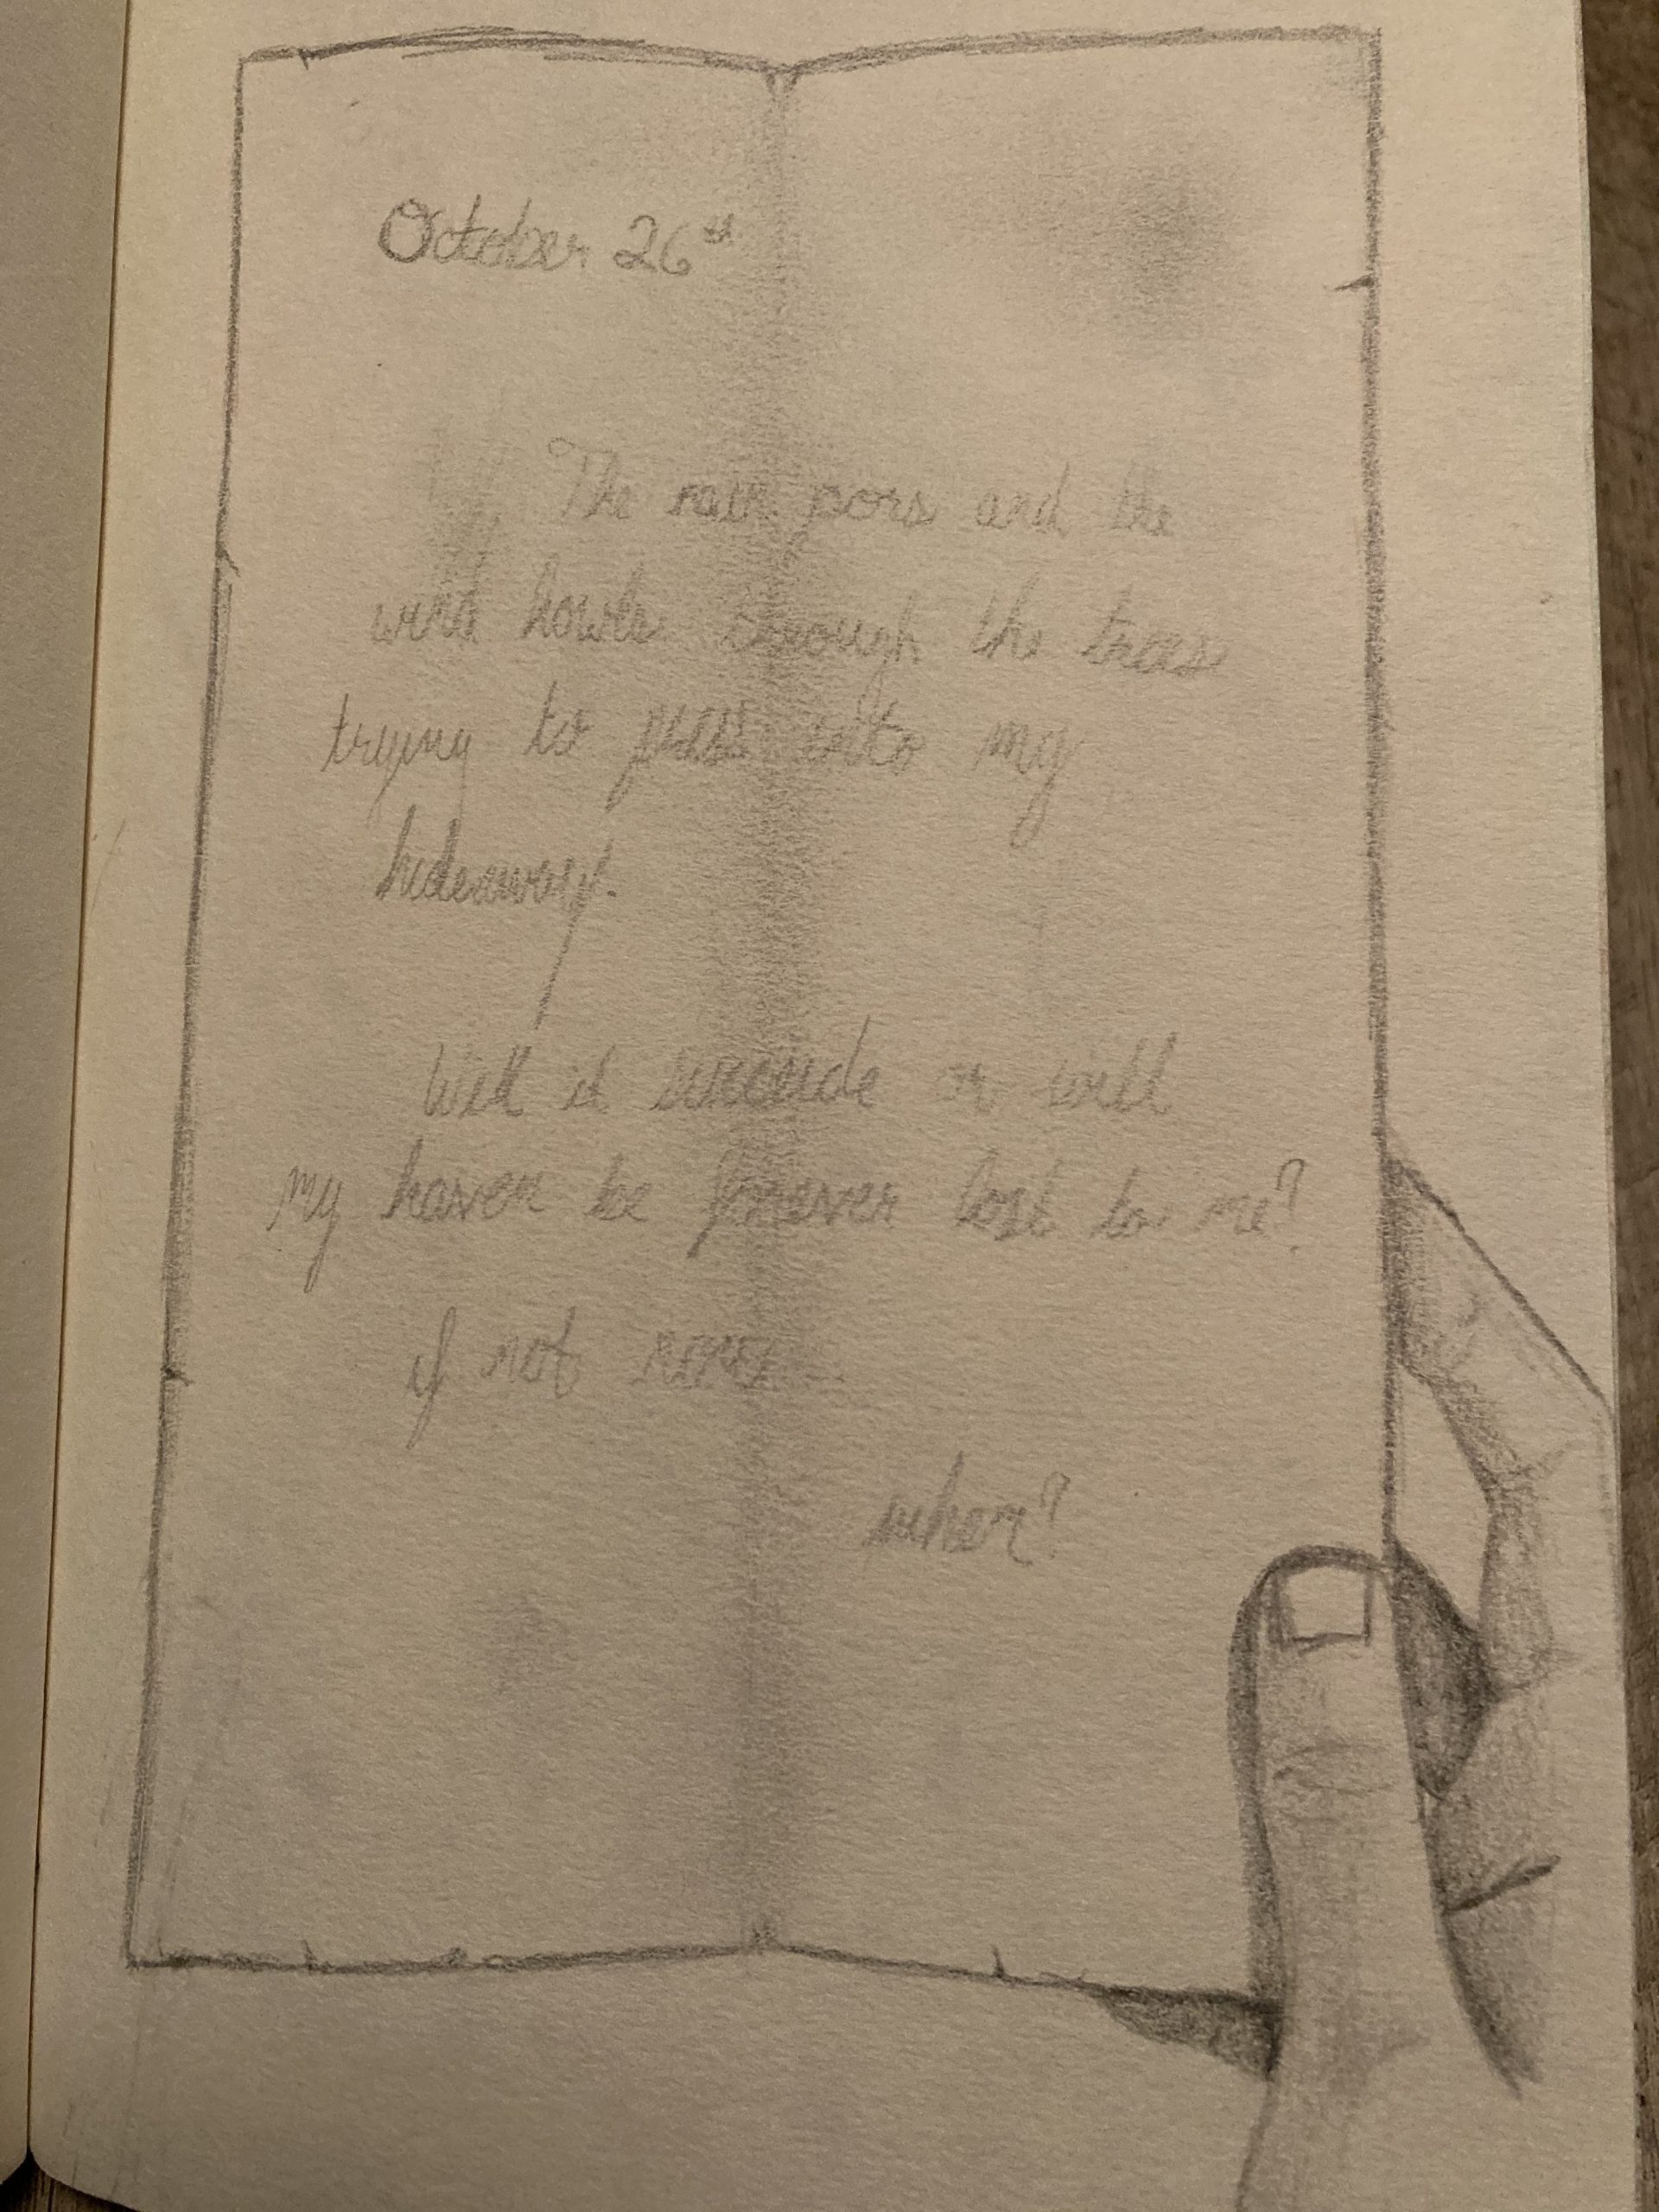 October 26th
The rain pors and the
wind howls through the trees
trying to pass into my
hideaway.
Will it succede or will
my haven be forever lost to me?
if not now
when?